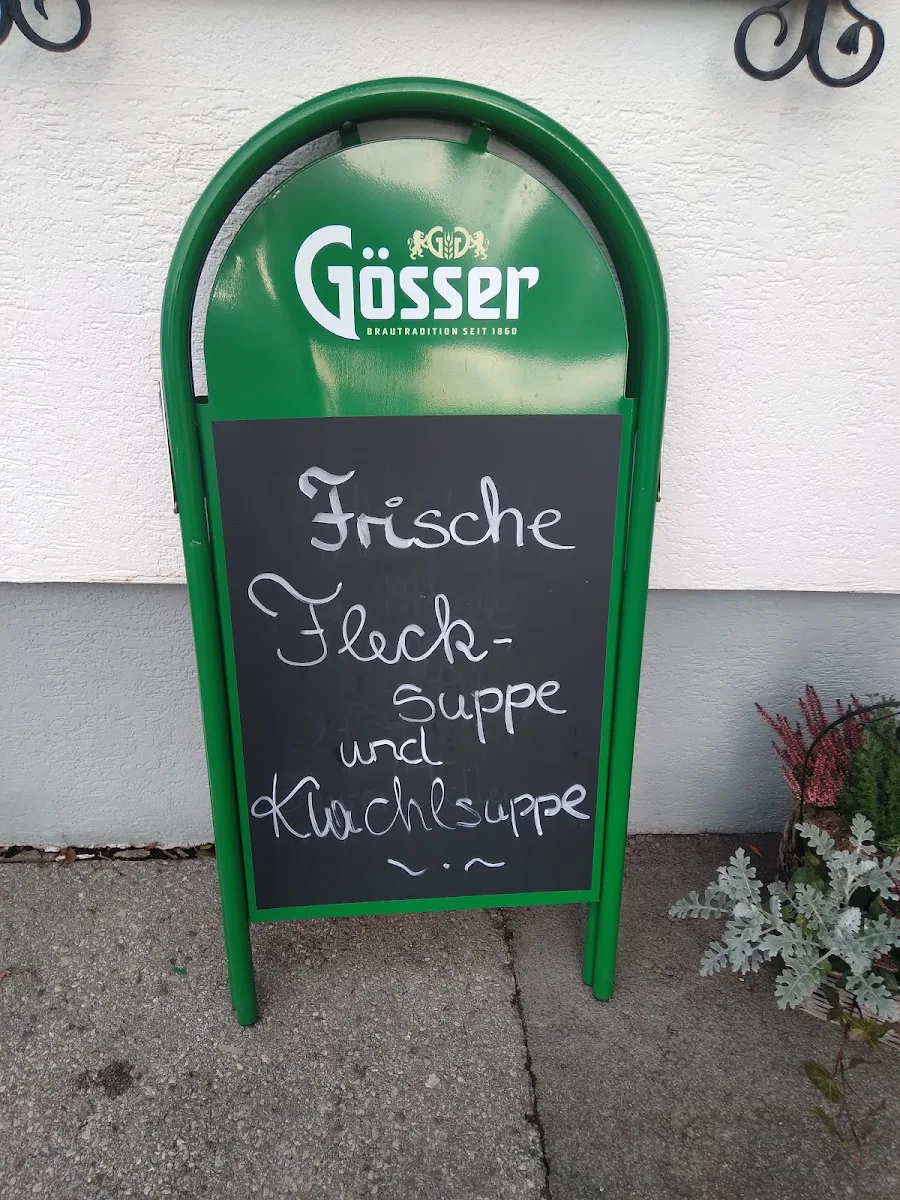 Gösser
BRAUTRADITION SEIT 1860
Frische
Fleck-
suppe
und
Klachlsuppe
~.~